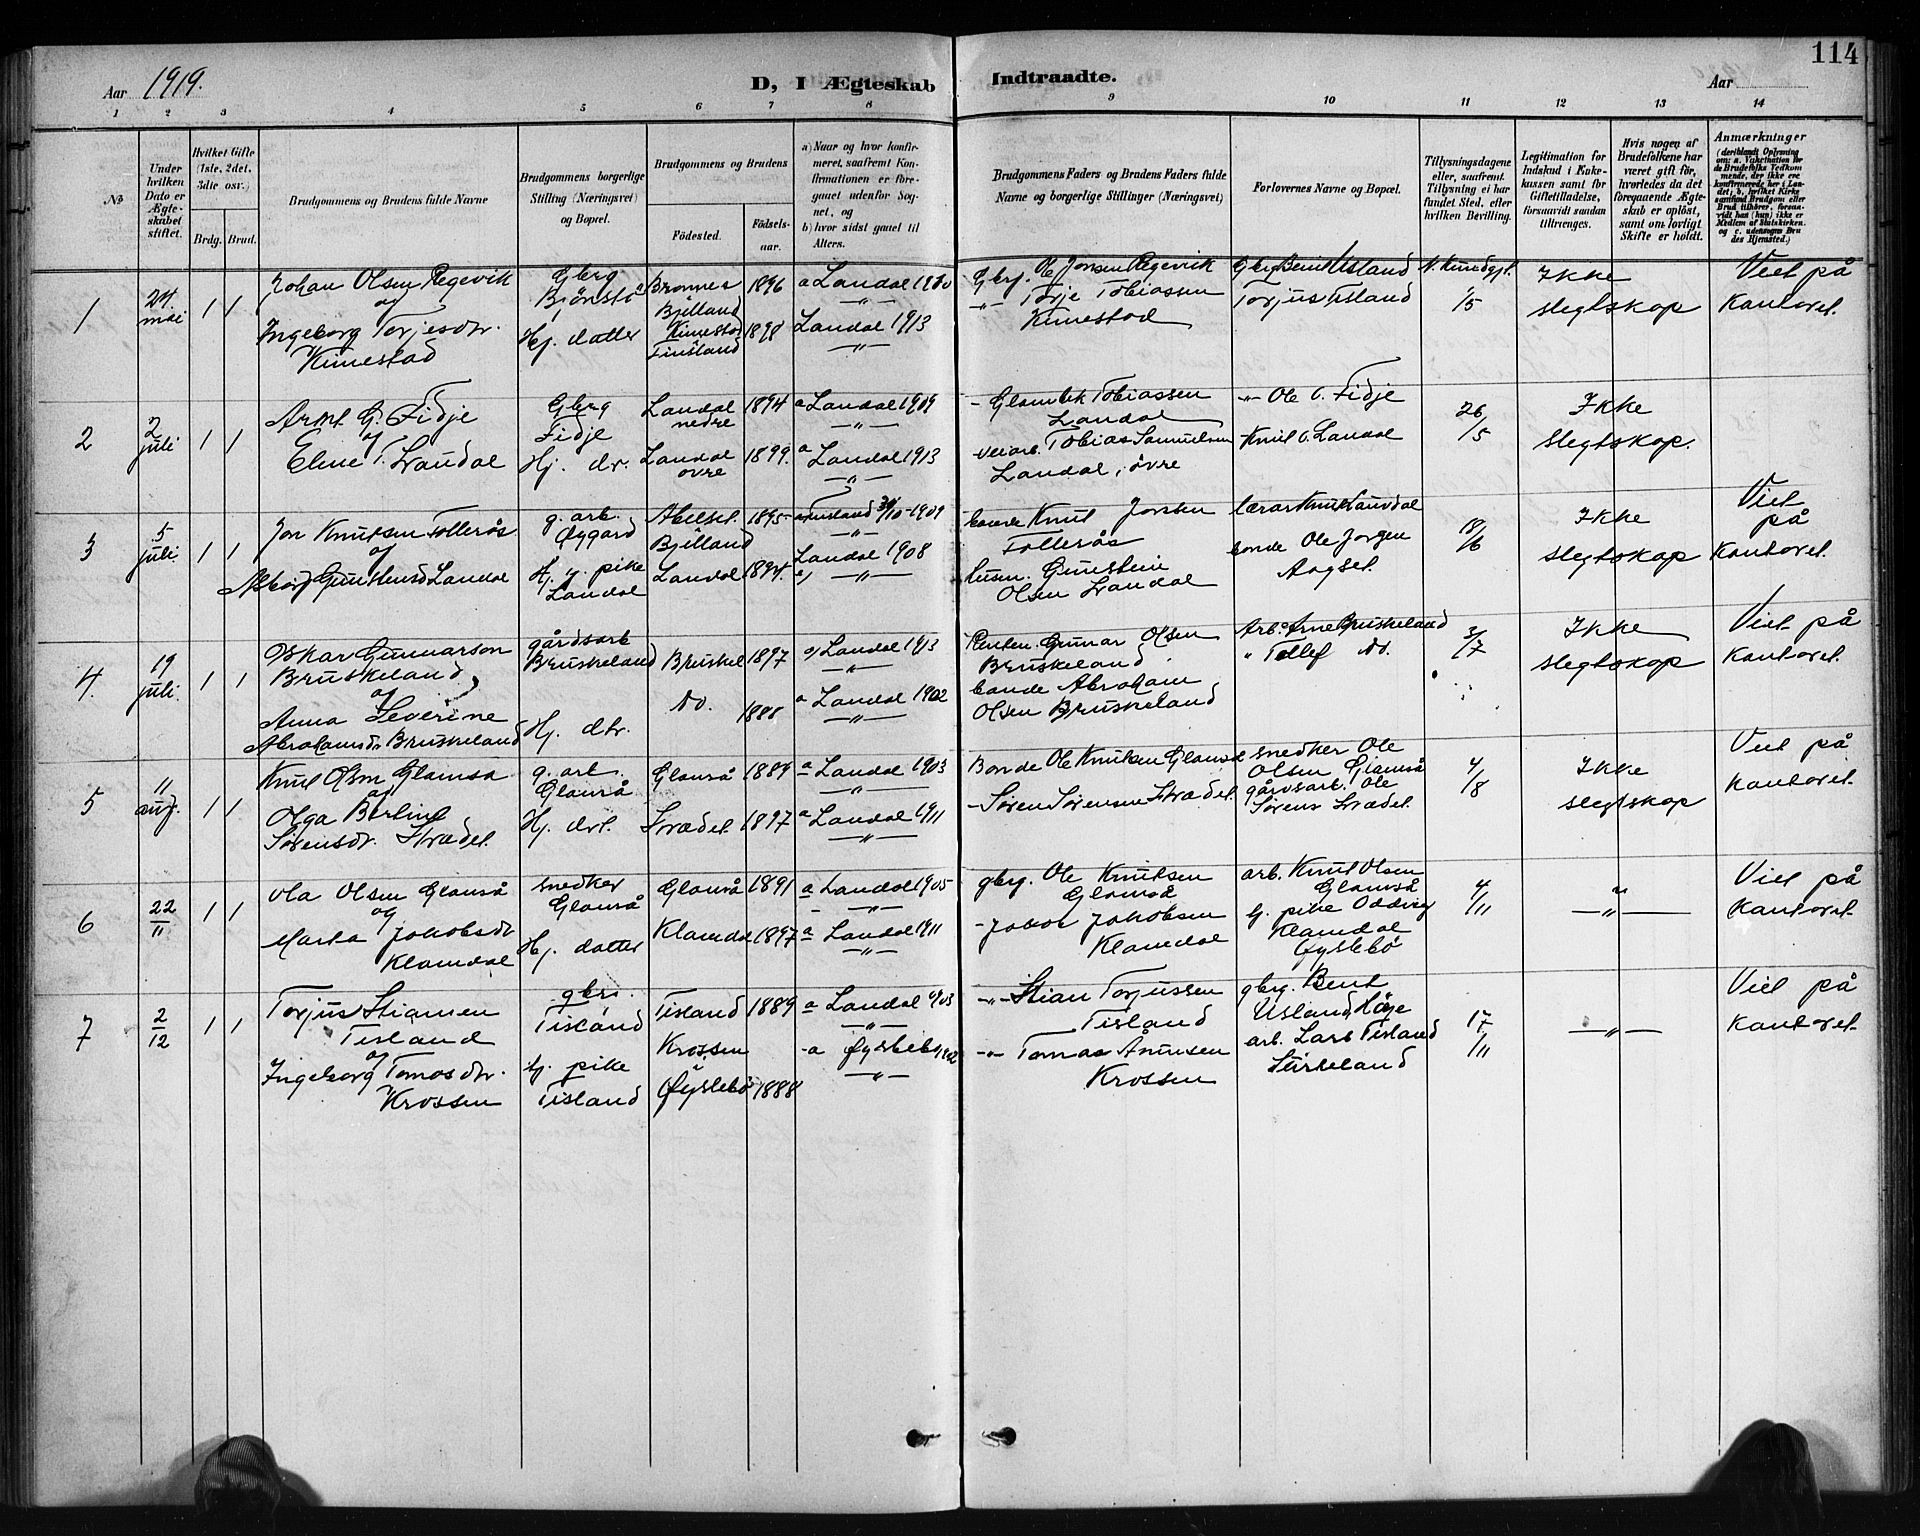 114
Aar 1919.
D, I Ægteskab Indtraadte.
Aar
1 2 3 4 5 6 7 8 9 10 11 12 13 14
No
Under hvilken Dato er Ægteskabet stiftet.
Hvilket Gifte (1ste, 2det, 3die osv.)
Brdg. Brud.
Brudgommens og Brudens fulde Navne
Brudgommens borgerlige Stilling (Næringsvei) og Bopæl.
Brudgommens og Brudens
Fødested.
Fødselsaar.
a) Naar og hvor konfirmeret, saafremt Konfirmationen er foregaaet udenfor Sognet, og
b) hvor sidst gaaet til Alters.
Brudgommens Faders og Brudens Faders fulde Navne og borgerlige Stillinger (Næringsvei)
Forlovernes Navne og Bopæl.
Tillysningsdagene eller, saafremt Tillysning ei har fundet Sted, efter hvilken Bevilling.
Legitimation for Indskud i Enkekassen samt for Giftetilladelse, forsaavidt saadan tiltrænges.
Hvis nogen af Brudefolkene har været gift før, hvorledes da det foregaaende Ægteskab er opløst, samt om lovligt Skifte er holdt.
Anmærkninger (deriblandt Oplysning om: a. Vakcination for de Brudefolks Vedkommende, der ikke ere konfirmerede her i Landet; b. hvilket Kirkesamfund Brudgom eller Brud tilhører, forsaavidt han (hun) ikke er Medlem af Statskirken, og c. udensogns Brudes Hjemsted.)
1 24 mai 1 1
Johan Olsen Regevik
og
Ingeborg Torjesdtr.
Kimestad
Gbrg
Bjönstö
Hj. datter
Bjelland
Kimestad
Finsland
1896
1898
a Laudal 1910
—„—
Laudal 1913
—„—
Gbrg. Ole Jonsen Regevik
—„— Torje Tobiassen
Kimestad
Gbrg Bent Usland
Torjus Tisland
1/5
Ikke
slegtskap
Viet på
Kantoret.
2 2 juli 1 1
Arnt G. Fidje
og
Eline T. Laudal
Gberg
Fidje
Hj. dr.
Laudal
nedre
Laudal
øvre
1894
1899.
a Laudal 1909
—„—
a Laudal 1913
—„—
Tobiassen
Laudal
veiarb. Tobias Samuelsen
Laudal, øvre
—„— Ole O. Fidje
Knut O. Laudal
26/5
Ikke
slegtskap.
3 5 juli. 1 1
Jon Knutsen Follerås
og
Gunsteinsd Laudal
g. arb.
Øygard
Hj. g. pike
Laudal
Abelset.
Bjelland
Laudal
1895
1894.
—„—
Laudal 1908
a) —„—
bonde Knut Jonsen
Follerås
husm. Gunstein
Olsen Laudal
lærer Knut Laudal
bonde Ole Jorgen
Aagset.
18/6
Ikke
slegtskap
Viet
på
Kantoret.
4. 19 juli. 1 1
Oskar Gunnarson
Bruskeland,
og
Anna Severine
Abrahamsdr Bruskeland
gårdsarb
Bruskeland
Hj. dtr.
Bruskel
do.
1897
1888
a) Laudal 1913
—„—
a Laudal 1902
—„—
Gunnar Olsen
Bruskeland
bonde Abraham
Olsen Bruskeland
Arb. Arne Bruskeland
„ Tollef do.
3/7
Ikke
slegtskap
Viet på
Kantoret.
5 11 aug. 1 1
Knut Olsen Glamså
og
Olga Berline
Sörensdr. Strædet.
g. arb.
Glamså
Hj. drt.
Glamså
Strædet.
1889
1897
a Laudal 1903
—„—
a Laudal 1911
—„—
Bonde Ole Knutsen Glamså
- Sören Sörensen Strædet.
snedker Ole
Olsen Glamså
gårdsarb. Ole
Sörens Strædet.
4/8
Ikke
slegtskap
Viet på
Kantoret.
6 22/11 1 1
Ola Olsen Glamså
og
Marta Jakobsdr
Klamdal
snedker
Glamså
Hj. datter
Glamså
Klamdal
1891
1897
a Laudal 1905
—„—
a Laudal 1911
—„—
gbrg. Ole Knutsen
Glamså
- Jakob Jakobsen
Klamdal
arb. Knut Olsen
Glamså
Klamdal
Øyslebø
4/11
—„—
„
Viet på
Kantoret.
7 2/12 1 1
Torjus Stiansen
Tisland
og
Ingeborg Tomasdtr.
Krossen
gbr.
Tisland
tj. pike
Tisland
Tisland
Krossen
Øyslebø
1889
1888
a Laudal 1903
—„—
a Øyslebø 1902
—„—
—„— Stian Torjussen
Tisland
—„— Tomas Anunsen
Krossen
gbrg. Bent
Usland, Höje
arb. Lars Tisland
17/11
—„—
Viet på
Kantoret.